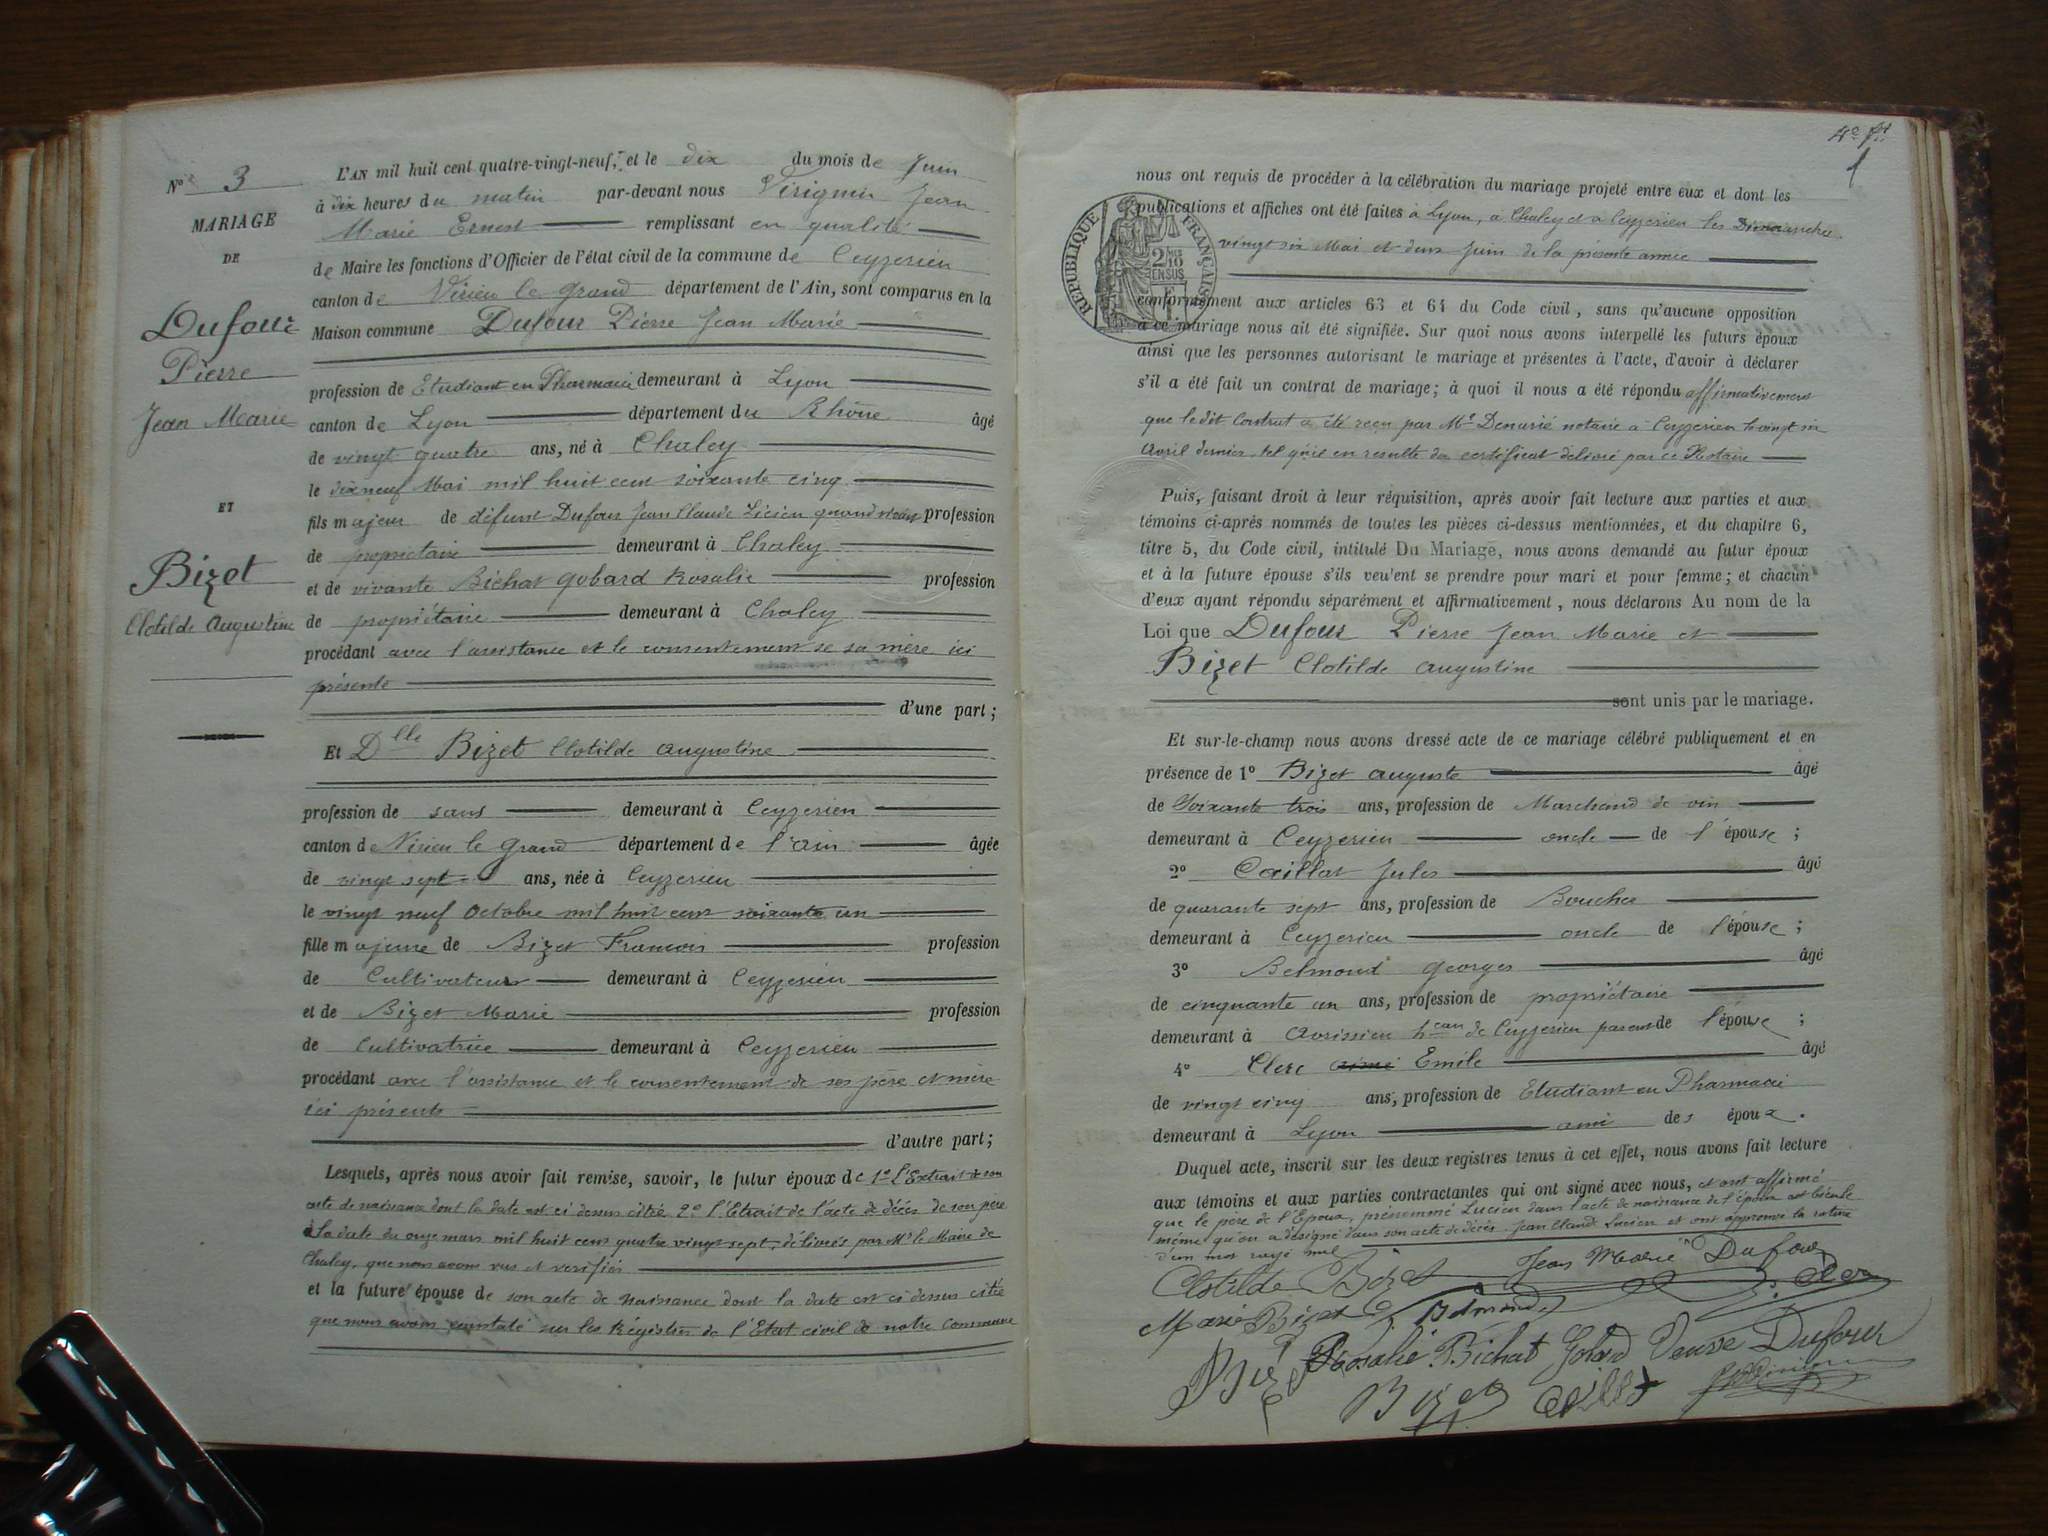 N° 3
MARIAGE
DE
Dufour
Pierre
Jean Marie
ET
Bizet
Clotilde Augustine
L'AN mil huit cent quatre-vingt-neuf, et le dix du mois de Juin
à dix heures du matin par-devant nous Virignin Jean
Marie Ernest remplissant en qualité
de Maire les fonctions d'Officier de l'état civil de la commune de Ceyzerieu
canton de Virieu le Grand département de l'Ain, sont comparus en la
Maison commune Dufour Pierre Jean Marie
profession de Etudiant en Pharmacie demeurant à Lyon
canton de Lyon département du Rhône âgé
de vingt quatre ans, né à Chaley
le dix neuf Mai mil huit cent soixante cinq
fils majeur de défunt Dufour Jean Claude Lucien quand vivait profession
de propriétaire demeurant à Chaley
et de vivante Bichat Gobard Rosalie profession
de propriétaire demeurant à Chaley
procédant avec l'assistance et le consentement de sa mère ici
présente
d'une part;
Et Dlle Bizet Clotilde Augustine
profession de sans demeurant à Ceyzerieu
canton de Virieu le Grand département de l'Ain âgée
de vingt sept ans, née à Ceyzerieu
le vingt neuf Octobre mil huit cent soixante un
fille majeure de Bizet François profession
de Cultivateur demeurant à Ceyzerieu
et de Bizet Marie profession
de Cultivatrice demeurant à Ceyzerieu
procédant avec l'assistance et le consentement de ses père et mère
ici présents
d'autre part;
Lesquels, après nous avoir fait remise, savoir, le futur époux de 1° l'Extrait de son
acte de naissance dont la date est ci dessus citée 2° l'Extrait de l'acte de décès de son père
à la date du onze mars mil huit cent quatre vingt sept, délivrés par Mr le Maire de
Chaley, que nous avons vus et vérifiés
et la future épouse de son acte de naissance dont la date est ci dessus citée
que nous avons constaté sur les Régistres de l'Etat civil de notre Commune
4e ft
1
nous ont requis de procéder à la célébration du mariage projeté entre eux et dont les
publications et affiches ont été faites à Lyon, à Chaley et à Ceyzerieu les Dimanches
vingt six Mai et deux Juin de la présente année
RÉPUBLIQUE FRANÇAISE
2 MES 10 EN SUS
conformément aux articles 63 et 64 du Code civil, sans qu'aucune opposition
à ce mariage nous ait été signifiée. Sur quoi nous avons interpellé les futurs époux
ainsi que les personnes autorisant le mariage et présentes à l'acte, d'avoir à déclarer
s'il a été fait un contrat de mariage; à quoi il nous a été répondu affirmativement
que le dit Contrat a été reçu par Me Denarié notaire à Ceyzerieu le vingt six
Avril dernier, tel qu'il en resulte du certificat délivré par ce Notaire
Puis, faisant droit à leur réquisition, après avoir fait lecture aux parties et aux
témoins ci-après nommés de toutes les pièces ci-dessus mentionnées, et du chapitre 6,
titre 5, du Code civil, intitulé Du Mariage, nous avons demandé au futur époux
et à la future épouse s'ils veulent se prendre pour mari et pour femme; et chacun
d'eux ayant répondu séparément et affirmativement, nous déclarons Au nom de la
Loi que Dufour Pierre Jean Marie et
Bizet Clotilde Augustine
sont unis par le mariage.
Et sur-le-champ nous avons dressé acte de ce mariage célébré publiquement et en
présence de 1° Bizet Auguste âgé
de Soixante trois ans, profession de Marchand de vin
demeurant à Ceyzerieu oncle de l'épouse;
2° Caillat Jules âgé
de quarante sept ans, profession de Boucher
demeurant à Ceyzerieu oncle de l'épouse;
3° Belmond Georges âgé
de cinquante un ans, profession de propriétaire
demeurant à Avrissieu hcau de Ceyzerieu parent de l'épouse;
4° Clerc aimé Emile âgé
de vingt cinq ans, profession de Etudiant en Pharmacie
demeurant à Lyon ami des époux.
Duquel acte, inscrit sur les deux registres tenus à cet effet, nous avons fait lecture
aux témoins et aux parties contractantes qui ont signé avec nous, et ont affirmé
que le père de l'Epoux, prénommé Lucien dans l'acte de naissance de l'époux est bien le
même qu'on a désigné dans son acte de décès Jean Claude Lucien et ont approuvé la rature
d'un mot rayé nul
Clotilde Bizet Jean Marie Dufour
Marie Bizet G. Belmond E. Clerc
Bizet Rosalie Bichat Gobard Veuve Dufour
Bizet A. Caillat